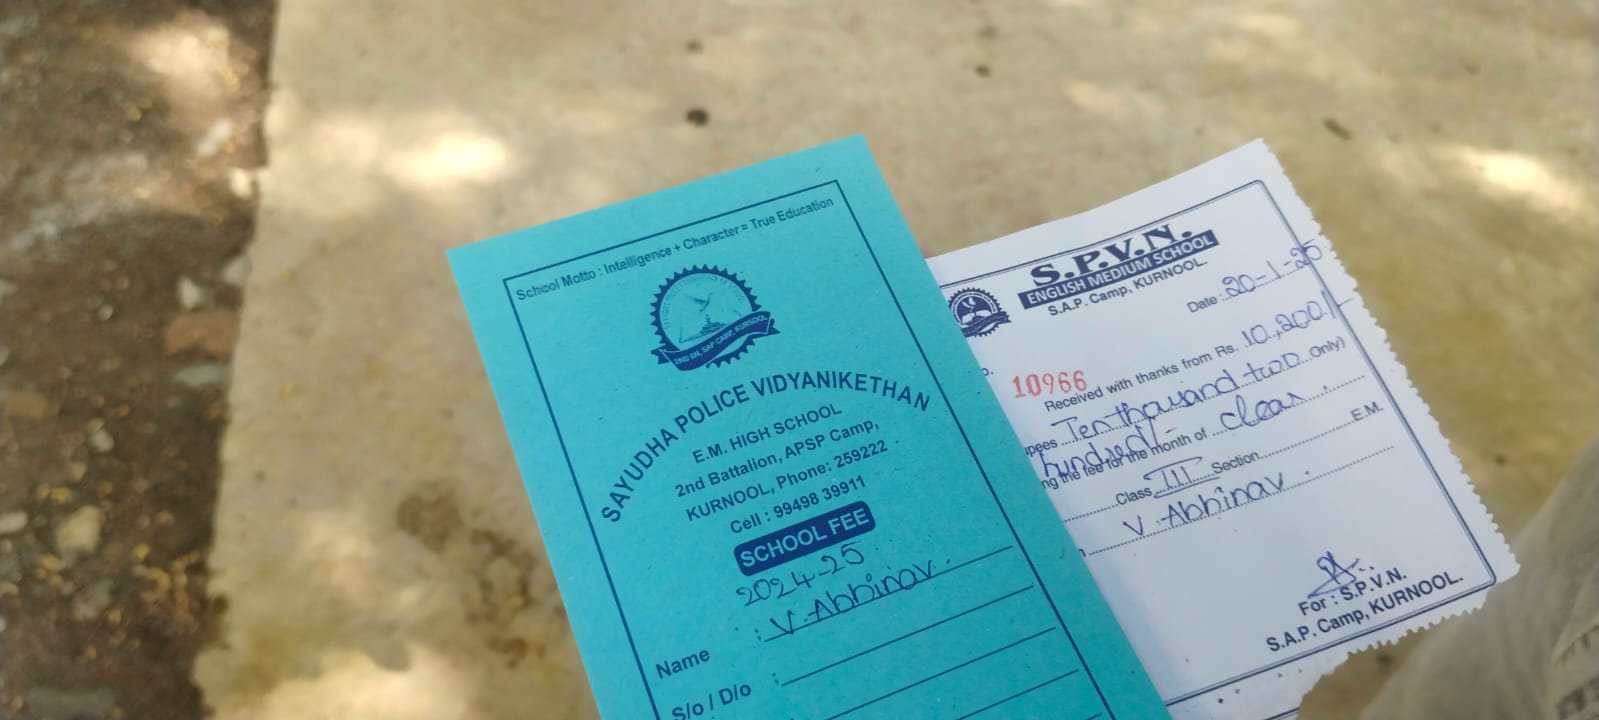 School Motto : Intelligence + Character = True Education
2ND BN, SAP CAMP, KURNOOL
SAYUDHA POLICE VIDYANIKETHAN
E.M. HIGH SCHOOL
2nd Battalion, APSP Camp,
KURNOOL, Phone: 259222
Cell : 99498 39911
SCHOOL FEE
2024-25
Name : V. Abhinav.
S/o / D/o :
S.P.V.N.
ENGLISH MEDIUM SCHOOL
S.A.P. Camp, KURNOOL.
Date : 20-1-25
10966
Received with thanks from Rs. 10,200/-
Ten thousand two Only)
hundred/-
the fee for the month of clear
Class III Section E.M.
V. Abhinav.
For : S.P.V.N.
S.A.P. Camp, KURNOOL.